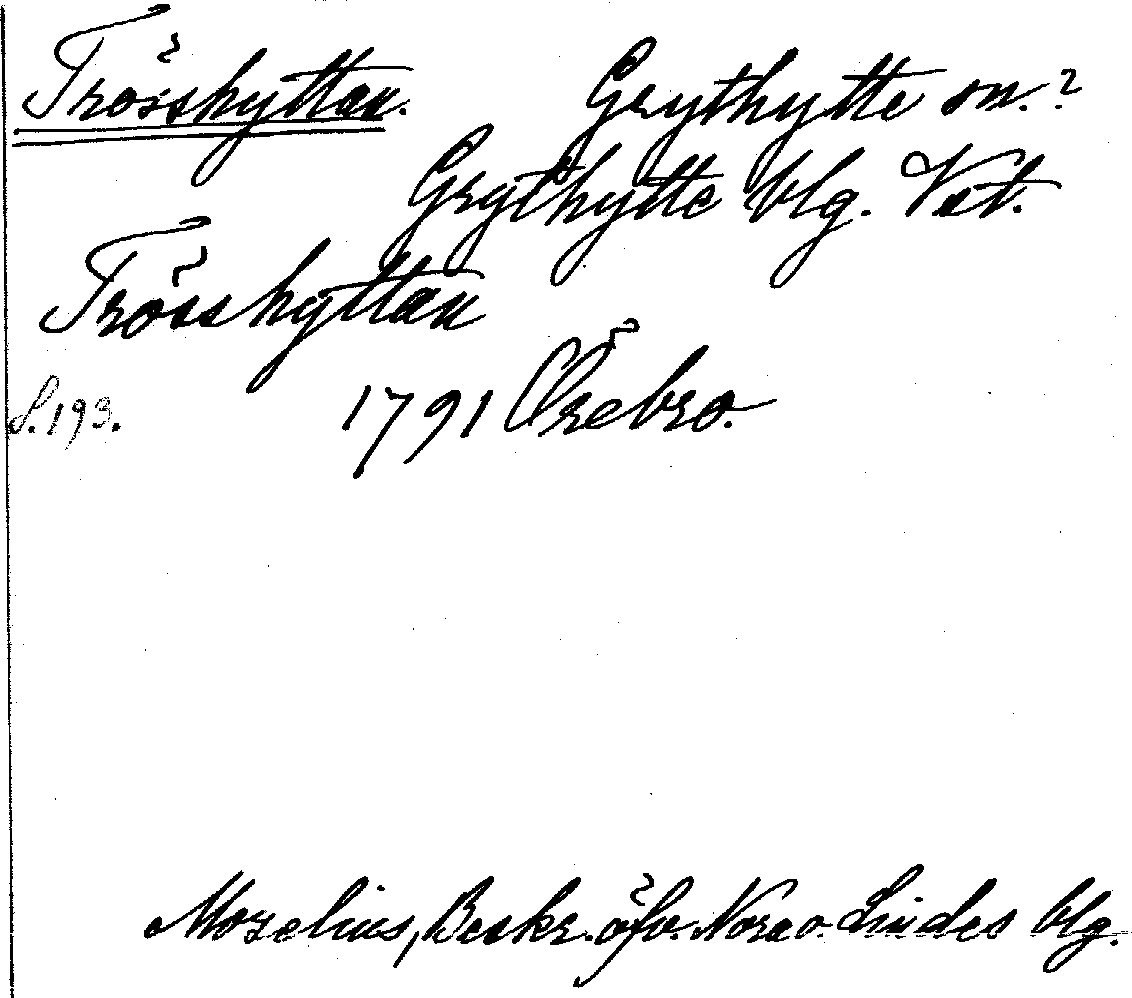 Trösshyttan. Grythytte sn.?
Grythytte blg. Vst.
Trösshyttan
S. 193. 1791 Örebro.
Mozelius, Beskr. öfv. Nora o. Lindes blg.